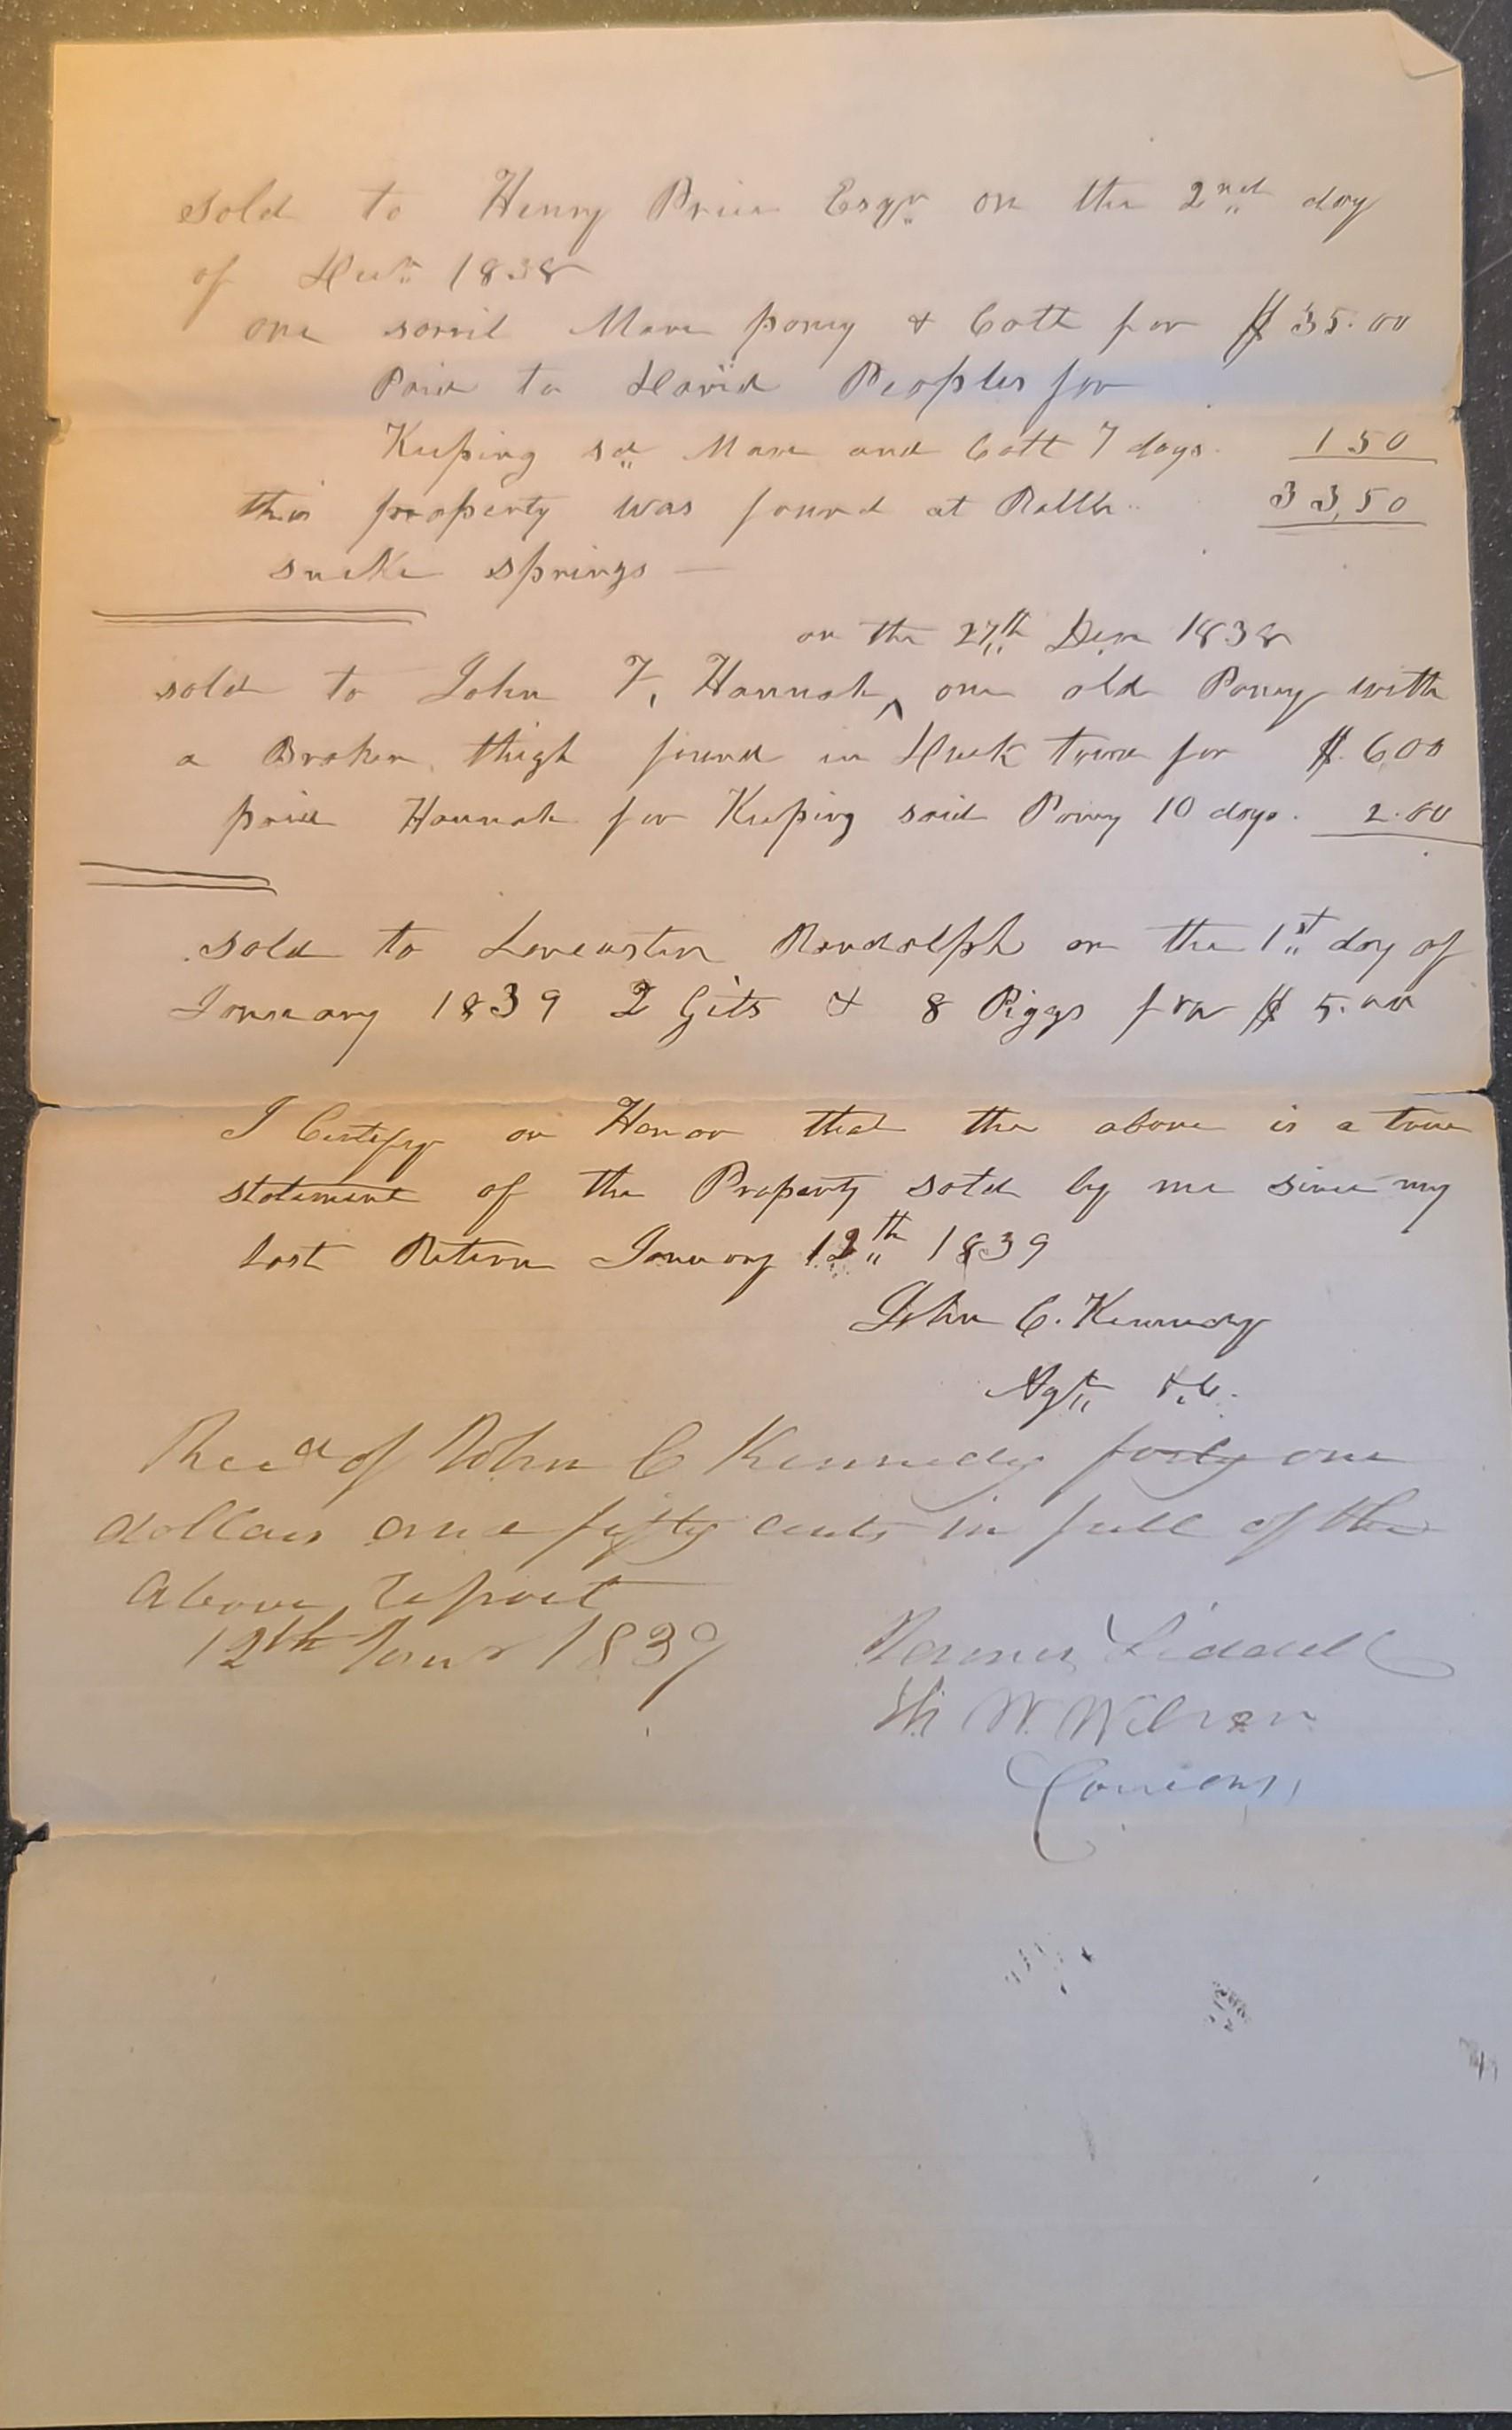 sold to Henry Price Esqr on the 2nd day
of Decr 1838
one sorril Mare poney & Colt for $ 35.00
Paid to David Peoples for
Keeping sd Mare and Colt 7 days. 1 50
this property was found at Rattle 33,50
snake springs —
on the 27th Decr 1838
sold to John F, Hannah ^ one old Poney with
a Broken thigh found in Duck town for $. 6,00
paid Hannah for Keeping said Poney 10 days. 2.00
sold to Randolph on the 1st day of
January 1839 2 Gits & 8 Piggs for $ 5.00
I Certify on Honor that the above is a true
statement of the Property sold by me since my
last Return January 12th 1839
John C. Kennedy
Agt
Recd of John C Kennedy forty one
dollars and fifty cents in full of the
above report
12th Jany 1839
Liddell
W. Wilson